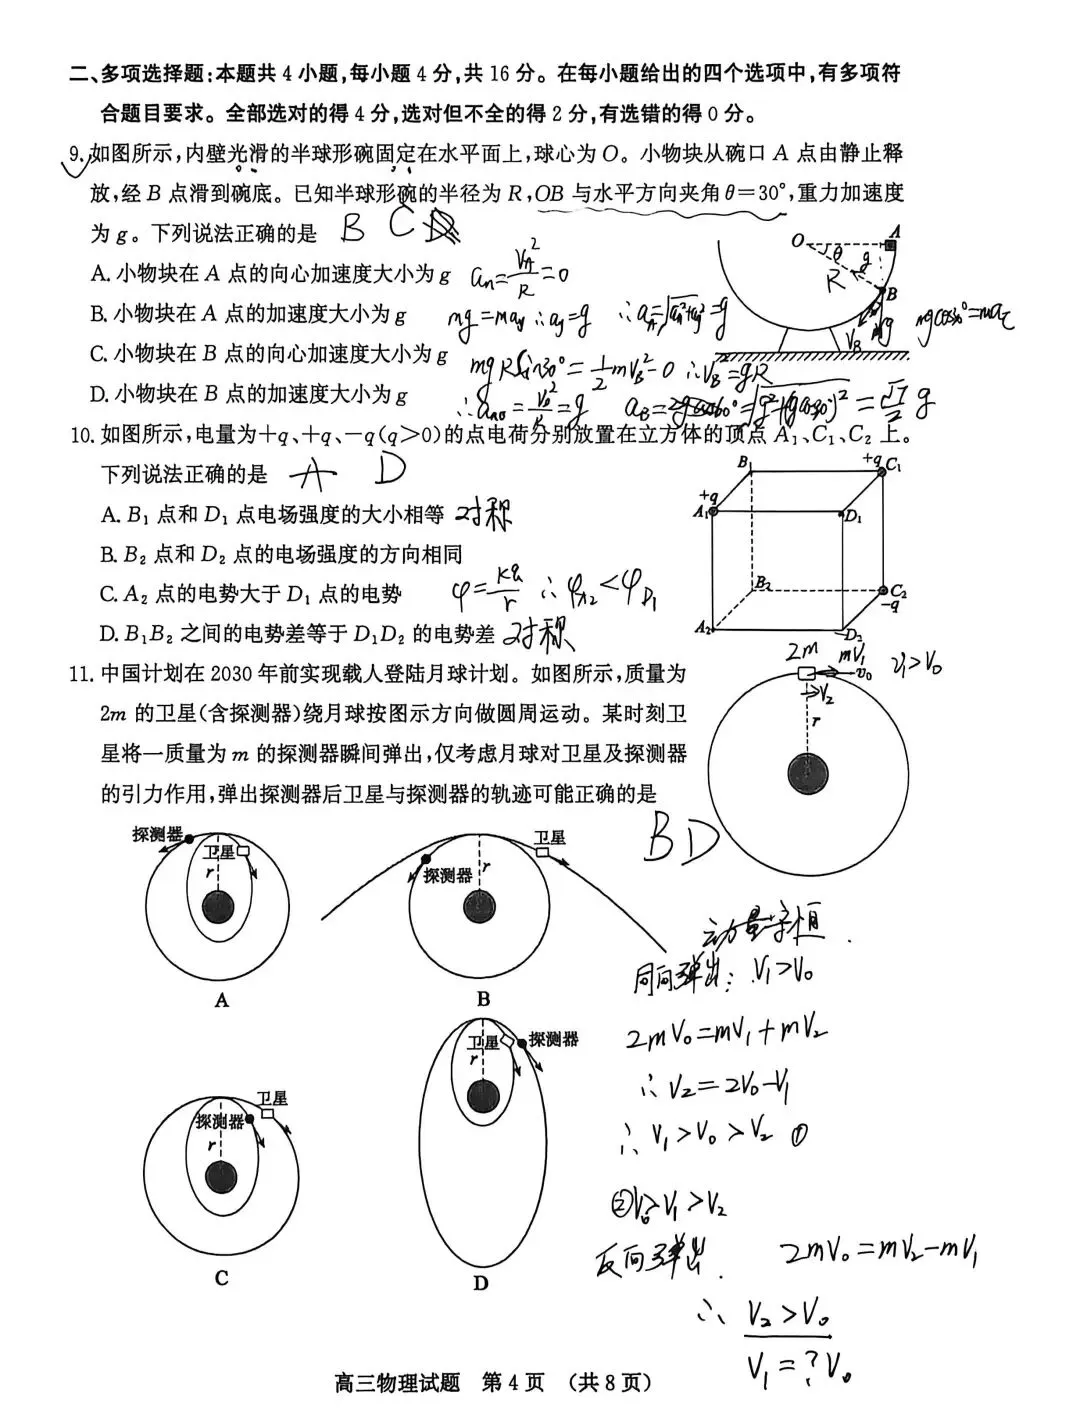 二、多项选择题:本题共 4 小题,每小题 4 分,共 16 分。在每小题给出的四个选项中,有多项符
合题目要求。全部选对的得 4 分,选对但不全的得 2 分,有选错的得 0 分。
9. 如图所示,内壁光滑的半球形碗固定在水平面上,球心为 O。小物块从碗口 A 点由静止释
放,经 B 点滑到碗底。已知半球形碗的半径为 R,OB 与水平方向夹角 θ=30°,重力加速度
为 g。下列说法正确的是 B C
O θ g A
R B
V_B mg
mgcos30°=ma_τ
A. 小物块在 A 点的向心加速度大小为 g aₙ=V_A²/R=0
B. 小物块在 A 点的加速度大小为 g mg=ma_y ∴a_y=g ∴a_A=√(aₙ²+a_y²)=g
C. 小物块在 B 点的向心加速度大小为 g mgRsin30°=½mV_B²-0 ∴V_B²=gR
D. 小物块在 B 点的加速度大小为 g =g a_B= =√(g²+(gcos30°)²)=√7/2 g
10. 如图所示,电量为+q、+q、-q(q>0)的点电荷分别放置在立方体的顶点 A₁、C₁、C₂ 上。
下列说法正确的是 A D
B₁ +q C₁
+q A₁ D₁
B₂ C₂ -q
A₂ D₂
A. B₁ 点和 D₁ 点电场强度的大小相等 对称
B. B₂ 点和 D₂ 点的电场强度的方向相同
C. A₂ 点的电势大于 D₁ 点的电势 φ=kq/r ∴φ_A₂<φ_D₁
D. B₁B₂ 之间的电势差等于 D₁D₂ 的电势差 对称
11. 中国计划在 2030 年前实现载人登陆月球计划。如图所示,质量为
2m 的卫星(含探测器)绕月球按图示方向做圆周运动。某时刻卫
星将一质量为 m 的探测器瞬间弹出,仅考虑月球对卫星及探测器
的引力作用,弹出探测器后卫星与探测器的轨迹可能正确的是
BD
2m mV₁ V₁>V₀
v₀
V₂
r
探测器 卫星 r
A
卫星 探测器 r
B
卫星 探测器 r
C
卫星 探测器 r
D
动量守恒.
同向弹出: V₁>V₀
2mV₀=mV₁+mV₂
∴V₂=2V₀-V₁
∴V₁>V₀>V₂ ①
②V₀>V₁>V₂
反向弹出. 2mV₀=mV₂-mV₁
∴V₂>V₀
V₁=?V₀
高三物理试题 第 4 页 (共 8 页)